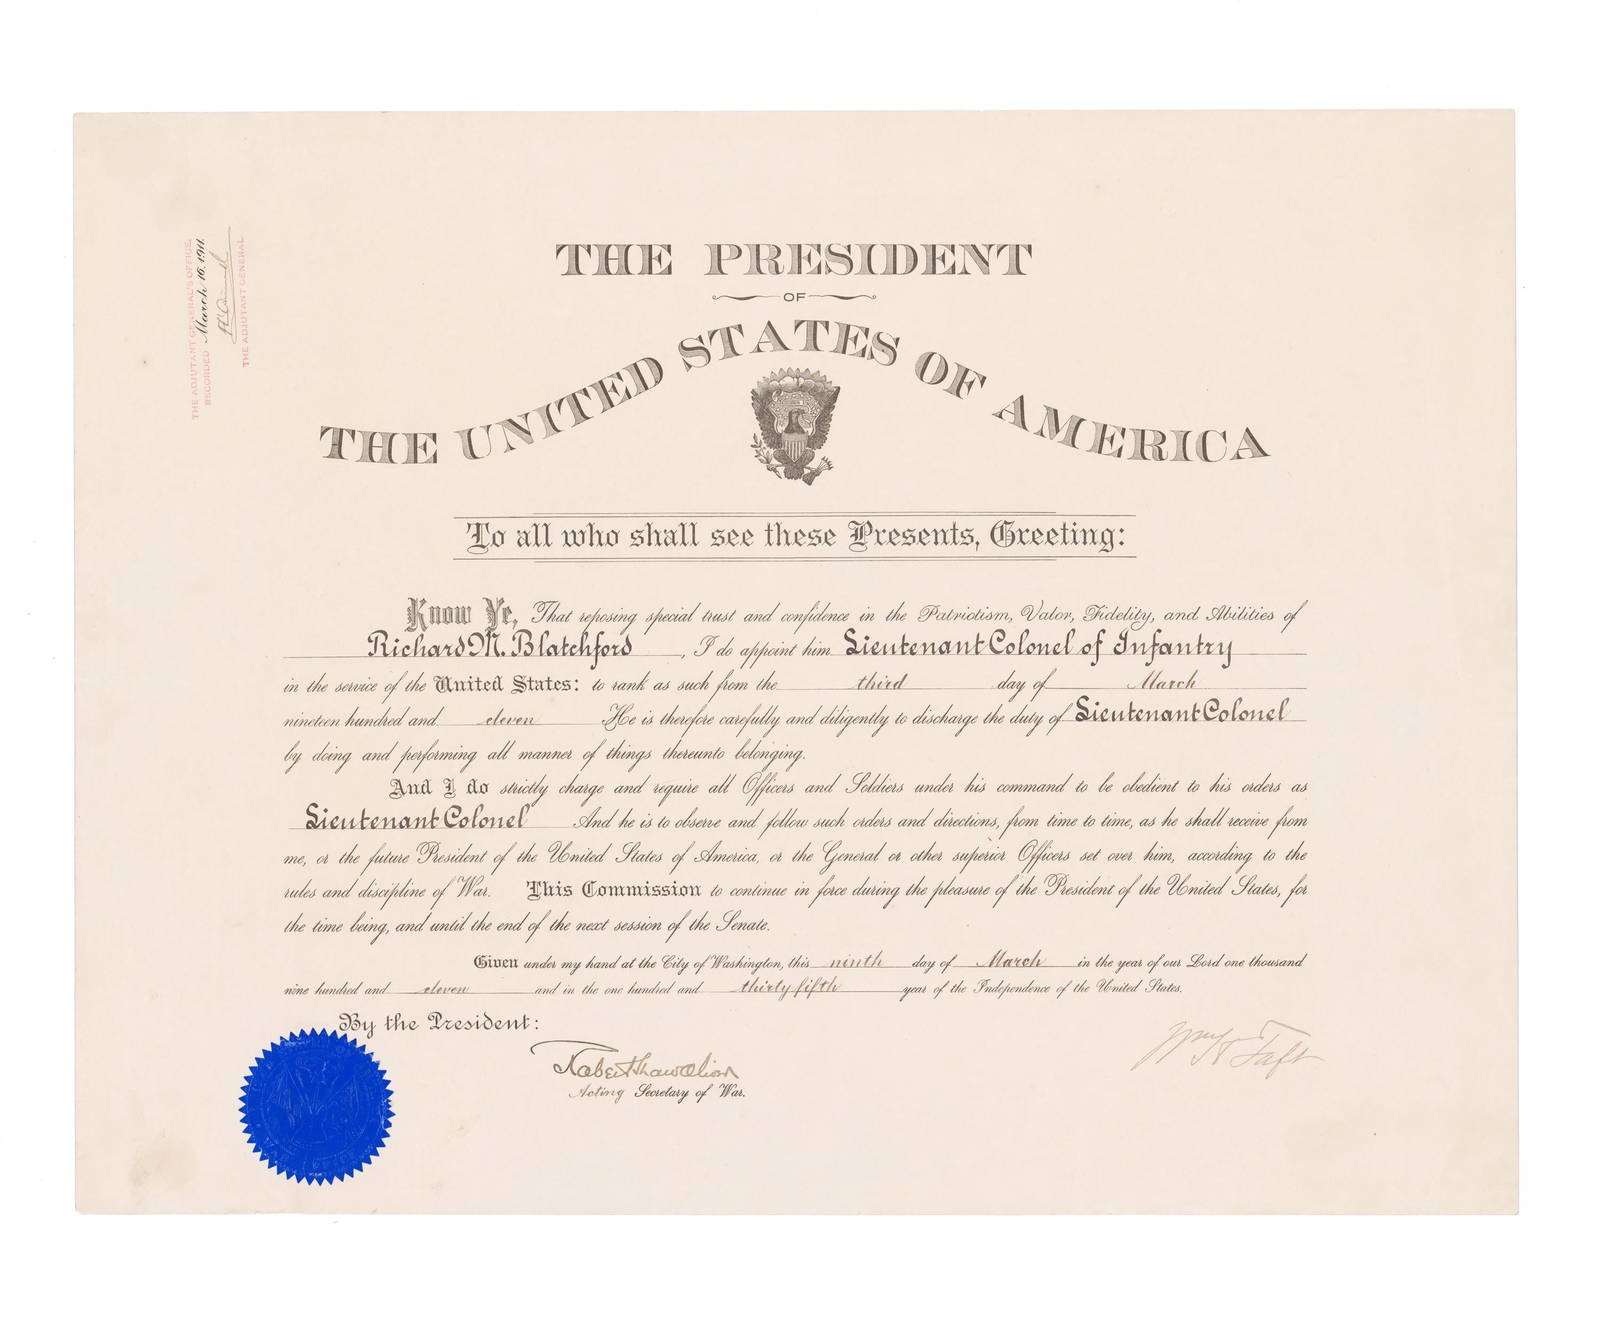 THE ADJUTANT GENERAL'S OFFICE,
RECORDED March 16, 1911.
THE ADJUTANT GENERAL.
THE PRESIDENT
OF
THE UNITED STATES OF AMERICA
To all who shall see these Presents, Greeting:
Know Ye, That reposing special trust and confidence in the Patriotism, Valor, Fidelity, and Abilities of
Richard M. Blatchford, I do appoint him Lieutenant Colonel of Infantry
in the service of the United States: to rank as such from the third day of March
nineteen hundred and eleven He is therefore carefully and diligently to discharge the duty of Lieutenant Colonel
by doing and performing all manner of things thereunto belonging.
And I do strictly charge and require all Officers and Soldiers under his command to be obedient to his orders as
Lieutenant Colonel And he is to observe and follow such orders and directions, from time to time, as he shall receive from
me, or the future President of the United States of America, or the General or other superior Officers set over him, according to the
rules and discipline of War. This Commission to continue in force during the pleasure of the President of the United States, for
the time being, and until the end of the next session of the Senate.
Given under my hand at the City of Washington, this ninth day of March in the year of our Lord one thousand
nine hundred and eleven and in the one hundred and thirty fifth year of the Independence of the United States.
By the President:
Wm H Taft
Robert Shaw Oliver
Acting Secretary of War.